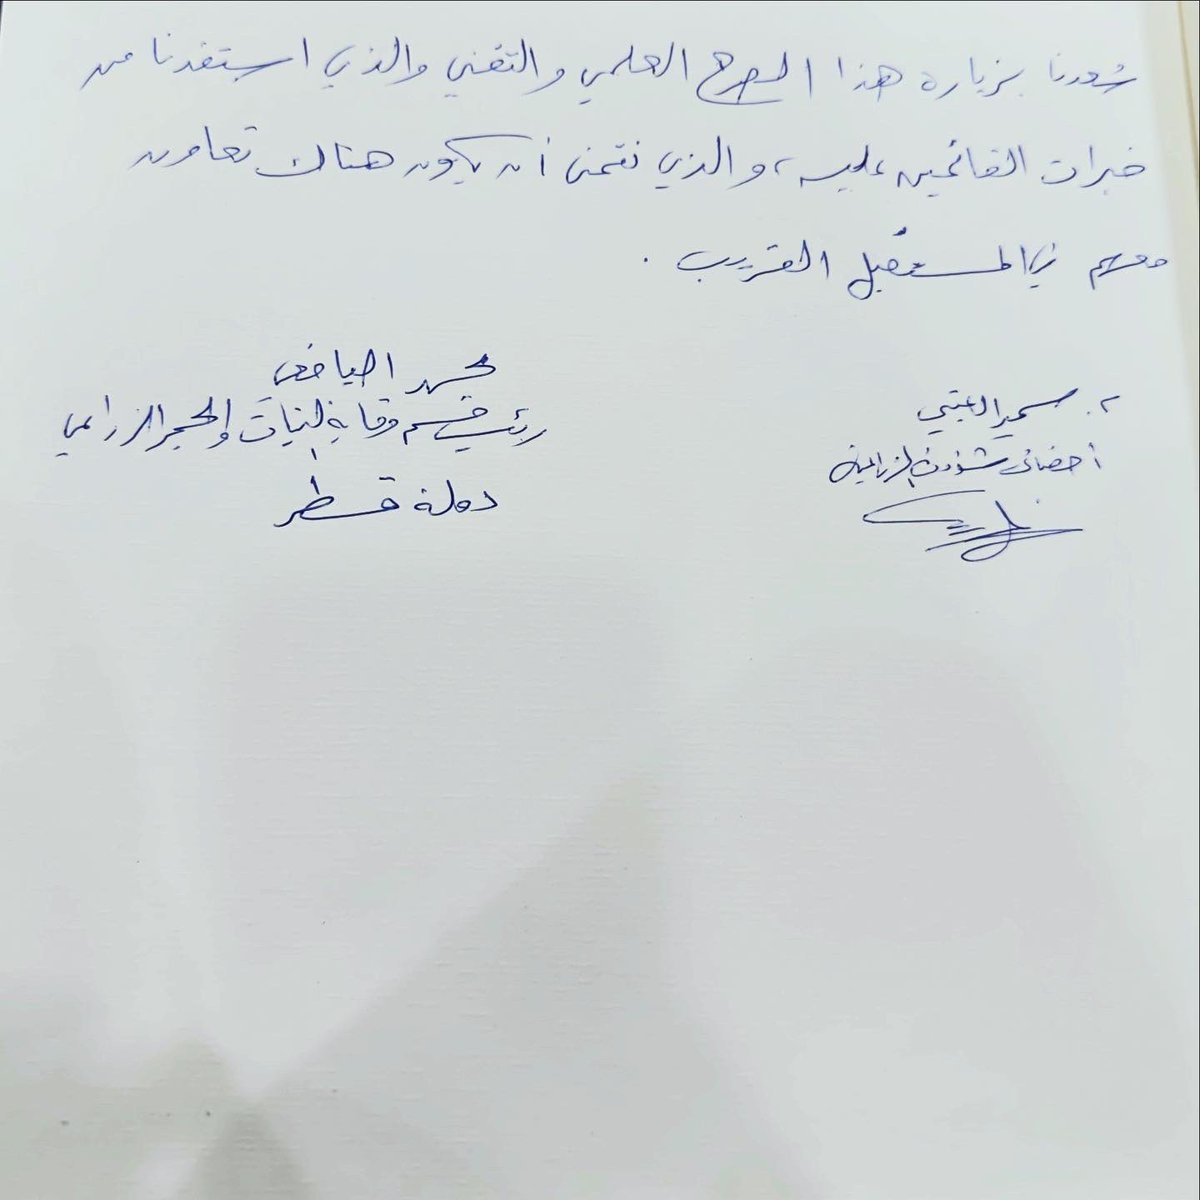 سُعدنا بزيارة هذا الصرح العلمي والتقني والذي استفدنا من
خبرات القائمين عليه، والذي نتمنى أن يكون هناك تعاون
معهم في المستقبل القريب.
محمد اليافعي
رئيس قسم وقاية النبات والحجر الزراعي
دولة قطر
م. سمير
أخصائي شؤون الزراعية